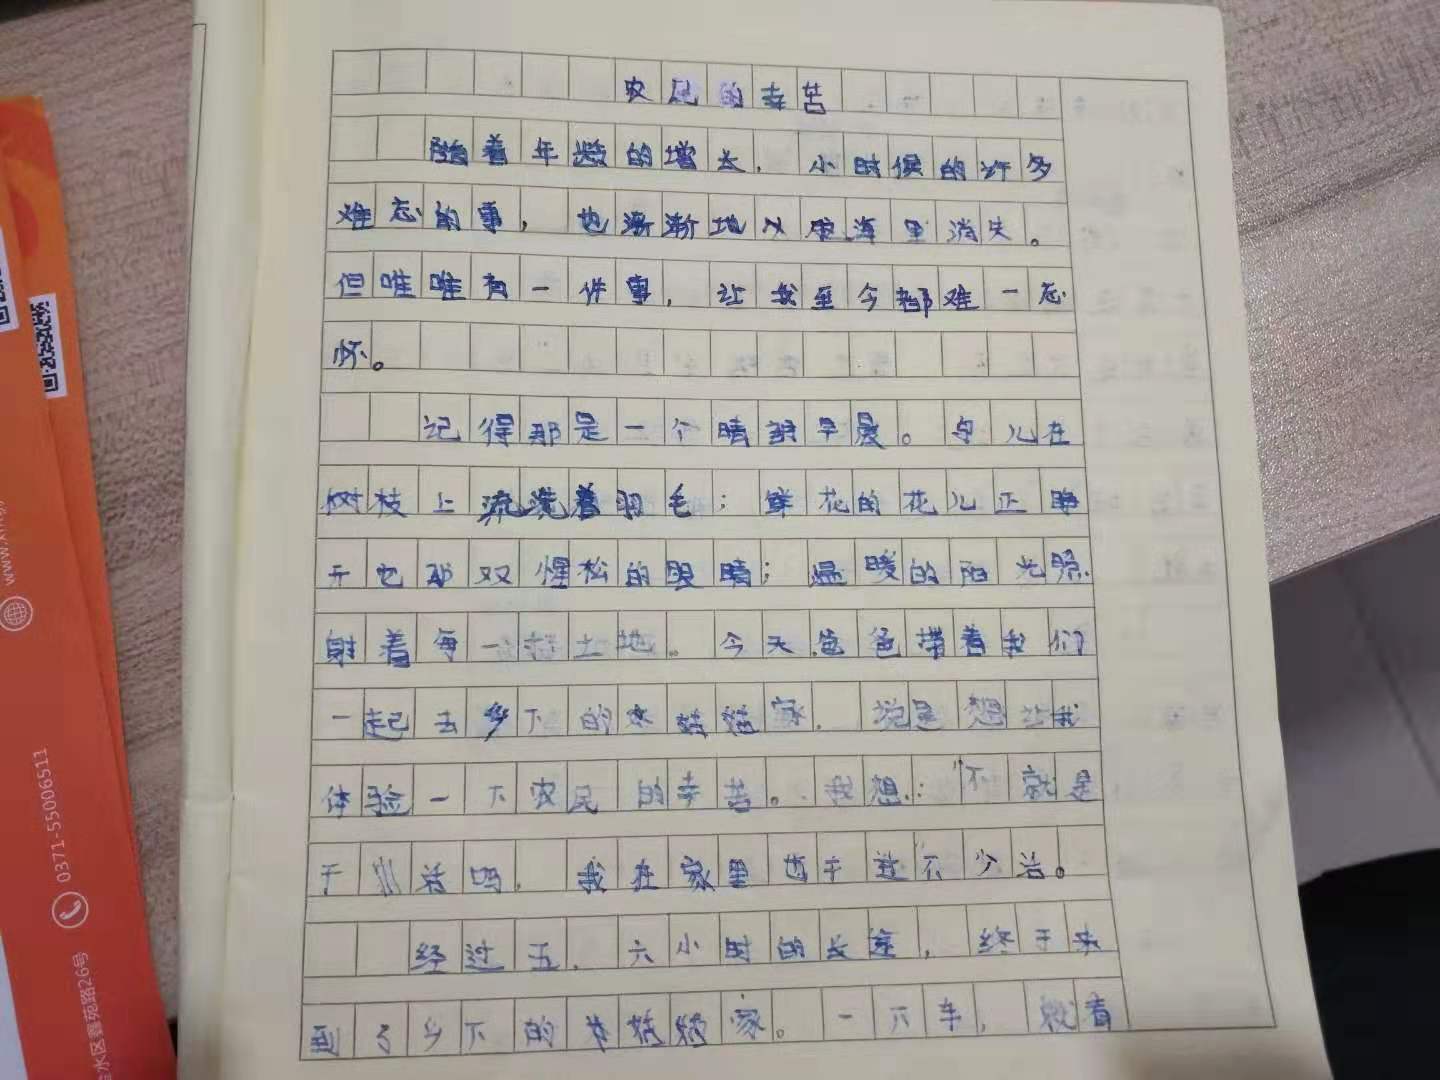 农民的幸苦
随着年数的增长，小时候的许多
难忘的事，也渐渐地从脑海里消失。
但唯唯有一件事，让我至今都难一忘
怀。
记得那是一个晴朗早晨。鸟儿在
树枝上流洗着羽毛；鲜花的花儿正睁
开它那双惺松的眼睛；温暖的阳光照
射着每一块土地。今天爸爸带着我们
一起去乡下的大姑姑家，说是想让我
体验一下农民的幸苦。我想：“不就是
干活吗，我在家里也干过不少活。
经过五，六小时的长途，终于来
到了乡下的大姑姑家。一下车，就看
www.xinyu
0371-55006511
金水区鑫苑路26号